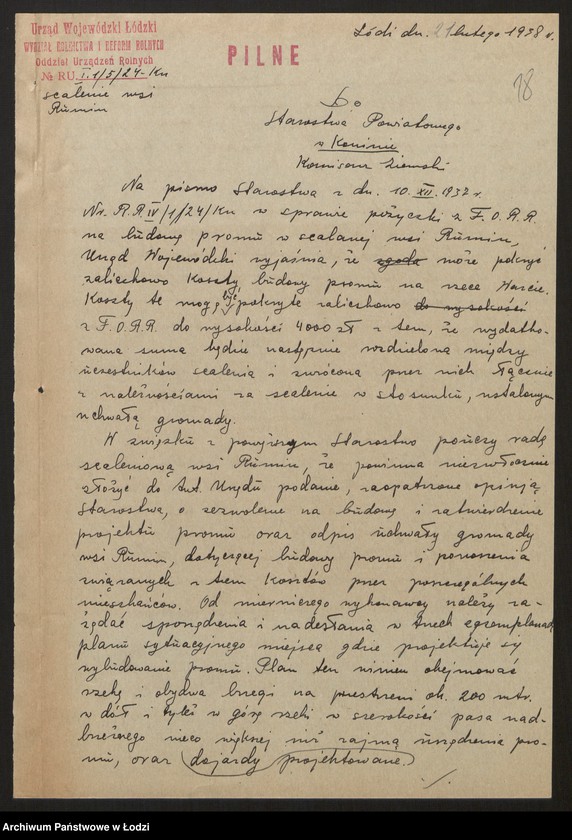 Urząd Wojewódzki Łódzki
WYDZIAŁ ROLNICTWA I REFORM ROLNYCH
Oddział Urządzeń Rolnych
№ RU. I.1/5/24-Kn
scalenie wsi
Rumin
PILNE
Łódź dn. 21 lutego 1938 r.
18
Do
Starostwa Powiatowego
w Koninie
Komisarz Ziemski
Na pismo Starostwa z dn. 10.XII.1937 r.
Nr. R.R.IV/1/24/Kn w sprawie pożyczki z F.O.R.R.
na budowę promu w scalanej wsi Rumin,
Urząd Wojewódzki wyjaśnia, że zgoda może pokryć
zaliczkowo koszty budowy promu na rzece Warcie.
Koszty te mogą być pokryte zaliczkowo do wysokości
z F.O.R.R. do wysokości 4000 zł z tem, że wydatko-
wana suma będzie następnie rozdzielona między
uczestników scalenia i zwrócona przez nich łącznie
z należnościami za scalenie w stosunku, ustalonym
uchwałą gromady.
W związku z powyższym Starostwo pouczy radę
scaleniową wsi Rumin, że powinna niezwłocznie
złożyć do tut. Urzędu podanie, zaopatrzone opinją
Starostwa, o zezwolenie na budowę i zatwierdzenie
projektu promu oraz odpis uchwały gromady
wsi Rumin, dotyczącej budowy promu i ponoszenia
związanych z tem kosztów przez poszczególnych
mieszkańców. Od mierniczego wykonawcy należy za-
żądać sporządzenia i nadesłania w trzech egzemplarzach
planu sytuacyjnego miejsca gdzie projektuje się
wybudowanie promu. Plan ten winien obejmować
rzekę i obydwa brzegi na przestrzeni ok. 200 mtr.
w dół i tyleż w górę rzeki w szerokości pasa nad-
brzeżnego nieco większej niż zajmą urządzenia pro-
mu, oraz dojazdy projektowane.
./.
Archiwum Państwowe w Łodzi